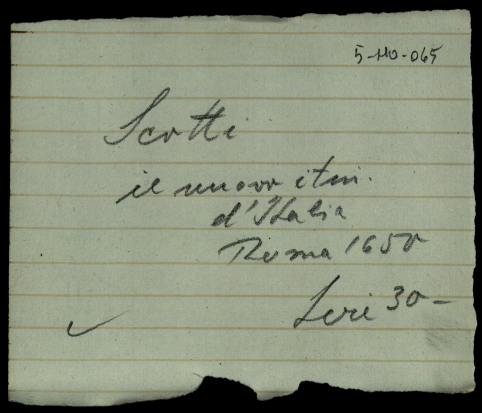 5-HO-065
Scotti
il nuovo itin.
d'Italia
Roma 1650
Lire 30-